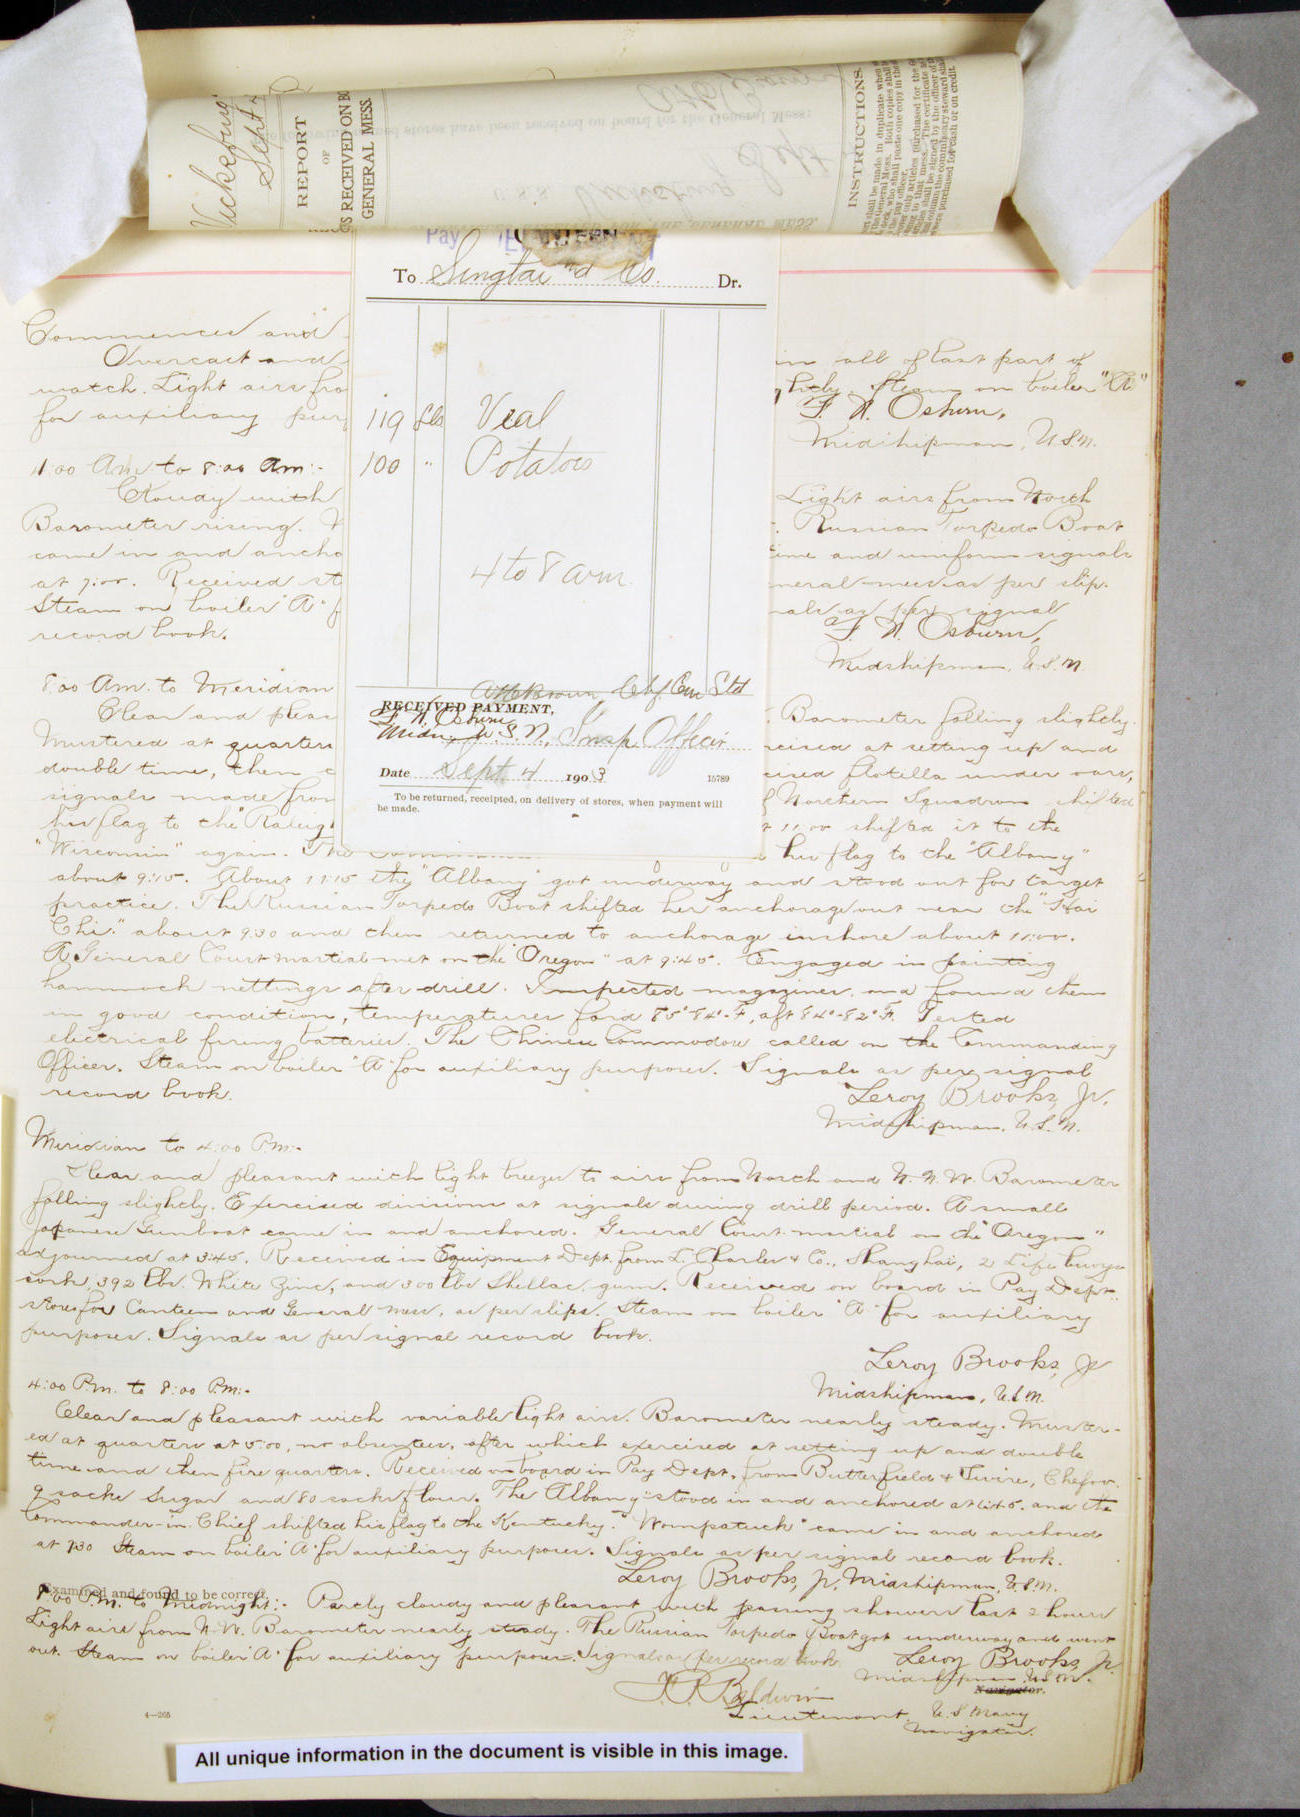 Vicksburg
Sept 4
REPORT
OF
GS RECEIVED ON BO
GENERAL MESS.
following named stores have been received on board for the General Mess:
U.S.S. Vicksburg Sept
GENERAL MESS.
INSTRUCTIONS.
shall be made in duplicate when
General Mess. Both copies shall
who shall paste one copy in the
pay officer.
only articles purchased for the
to that mess. The certificate
shall be signed by the officer of
column the commissary steward
where purchased for cash or on credit.
Pay
To Singtai and Co. Dr.
119 lbs Veal
100 " Potatoes
4 to 8 am.
Com Std
RECEIVED PAYMENT,
F. N. Osburn
Midn. U.S.N., Insp. Officer
Date Sept. 4 1903
15789
To be returned, receipted, on delivery of stores, when payment will
be made.
Commences and
Overcast and
in all of last part of
watch. Light airs fro
Steam on boiler "A"
for auxiliary pur
F. N. Osburn,
Midshipman, U.S.N.
4:00 Am to 8:00 Am:-
Cloudy with
Light airs from North
Barometer rising.
Russian Torpedo Boat
came in and ancho
time and uniform signals
at 7:00. Received st
neral mess as per slip.
Steam on boiler "A" f
nals as per signal
record book.
F. N. Osburn,
Midshipman, U.S.N.
8:00 Am. to Meridian
Clear and pleas
Barometer falling slightly.
Mustered at quarters
rcised at setting up and
double time, then
cised flotilla under oars,
signals made from
of Northern Squadron shifted
his flag to the "Raleigh
11:00 shifted it to the
"Wisconsin" again. The
his flag to the "Albany"
about 9:15. About 11:15 the "Albany" got underway and stood out for target
practice. The Russian Torpedo Boat shifted her anchorage out near the "Hai
Chi." about 9:30 and then returned to anchorage inshore about 11:00.
A General Court-martial met on the "Oregon" at 9:45. Engaged in painting
hammock nettings after drill. Inspected magazines, and found them
in good condition, temperatures for'd 85°-84°-F, aft 84°-82° F. Tested
electrical firing batteries. The Chinese Commodore called on the Commanding
Officer. Steam on boiler "A" for auxiliary purposes. Signals as per signal
record book.
Leroy Brooks, Jr.
Midshipman, U.S.N.
Meridian to 4:00 P.M:-
Clear and pleasant with light breezes to airs from North and N.N.W. Barometer
falling slightly. Exercised divisions at signals during drill period. A small
Japanese Gunboat came in and anchored. General Court-martial on the "Oregon"
adjourned at 3:45. Received in Equipment Dept. from L. Charles & Co., Shanghai, 2 Life buoys
cork, 392 lbs. White Zinc, and 300 lbs Shellac gum. Received on board in Pay Dept.
stores for Canteen and General mess, as per slips. Steam on boiler "A" for auxiliary
purposes. Signals as per signal record book.
Leroy Brooks, Jr
Midshipman, U.S.N.
4:00 P.m. to 8:00 P.m:-
Clear and pleasant with variable light airs. Barometer nearly steady. Muster-
ed at quarters at 5:00, no absentees, after which exercised at setting up and double
time and then fire quarters. Received on board in Pay Dept. from Butterfield & Swire, Chefoo.
9 sacks Sugar and 80 sacks flour. The "Albany" stood in and anchored at and the
Commander-in-Chief shifted his flag to the "Kentucky." "Wompatuck" came in and anchored
at 7:30 Steam on boiler "A" for auxiliary purposes. Signals as per signal record book.
Leroy Brooks, Jr, Midshipman, U.S.N.
Examined and found to be correct.
8:00 P.M. to Midnight:- Partly cloudy and pleasant with passing showers last 2 hours
Light airs from N.W. Barometer nearly steady. The Russian Torpedo Boat got underway and went
out. Steam on boiler "A" for auxiliary purposes. Signals as per record book.
Leroy Brooks, Jr.
Midshipman U.S.N.
Navigator.
Baldwin
Lieutenant, U.S. Navy
Navigator.
4—265
All unique information in the document is visible in this image.